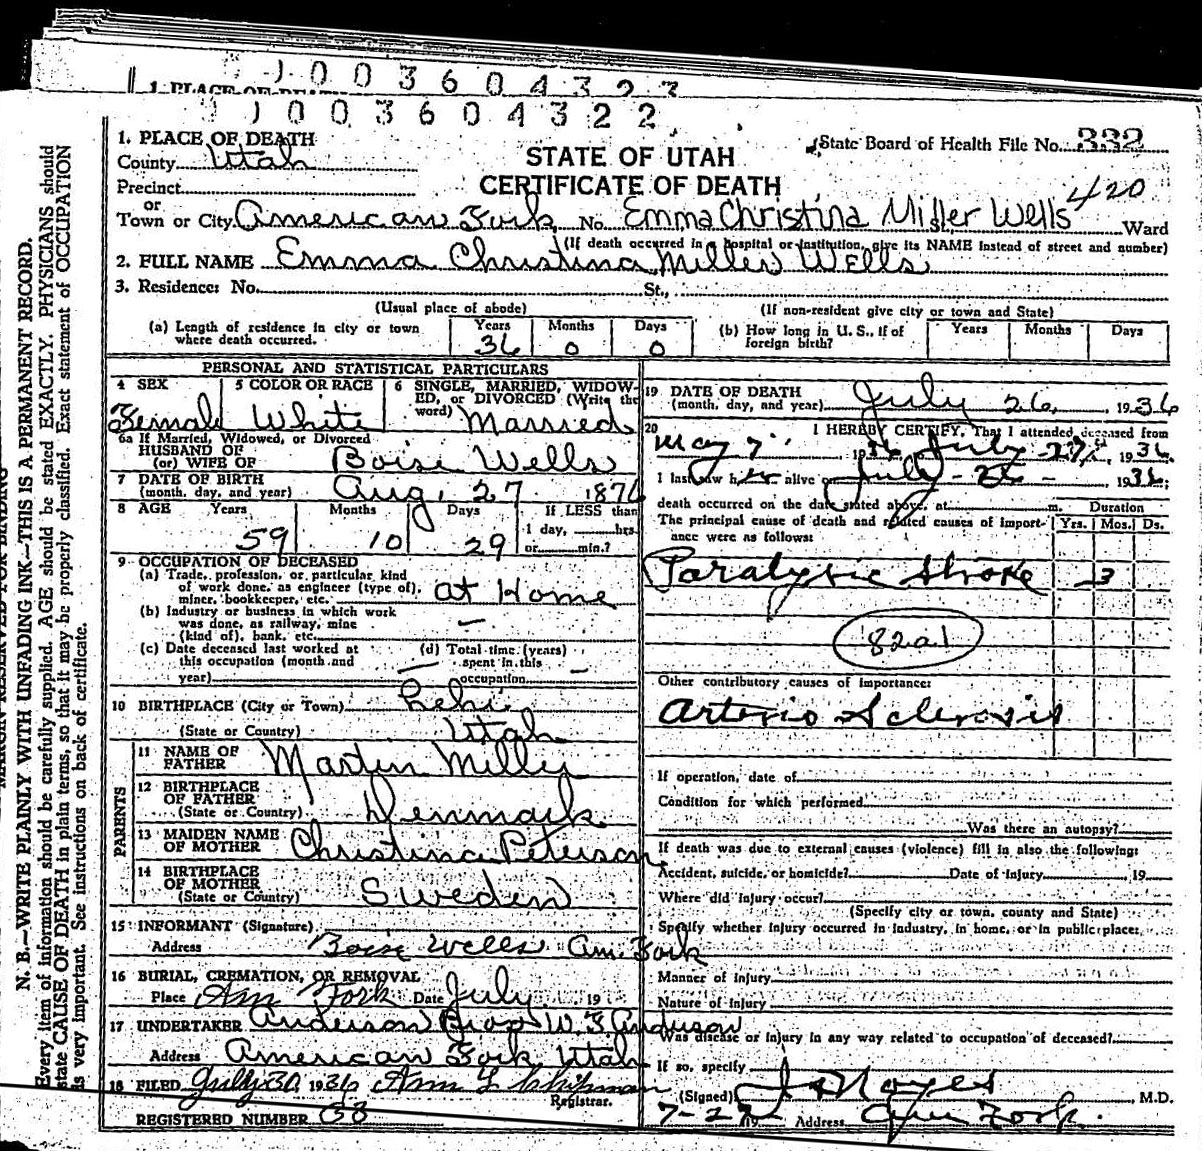 1003604323
1. PLACE OF DEATH
1003604322
1. PLACE OF DEATH
County Utah
STATE OF UTAH
CERTIFICATE OF DEATH
State Board of Health File No. 332
420
Precinct
or
Town or City American Fork No. Emma Christina Miller Wells Ward
(If death occurred in a hospital or institution, give its NAME instead of street and number)
2. FULL NAME Emma Christina Miller Wells
3. Residence: No. St.,
(Usual place of abode) (If non-resident give city or town and State)
(a) Length of residence in city or town where death occurred. Years 36 Months 0 Days 0
(b) How long in U. S., if of foreign birth? Years Months Days
PERSONAL AND STATISTICAL PARTICULARS
4 SEX Female
5 COLOR OR RACE White
6 SINGLE, MARRIED, WIDOWED, or DIVORCED (Write the word) Married
6a If Married, Widowed, or Divorced
HUSBAND OF
(or) WIFE OF Boise Wells
7 DATE OF BIRTH
(month, day, and year) Aug. 27 1876
8 AGE Years 59 Months 10 Days 29 If LESS than 1 day, hrs. or min.?
9 OCCUPATION OF DECEASED
(a) Trade, profession, or particular kind
of work done, as engineer (type of),
miner, bookkeeper, etc. at Home
(b) Industry or business in which work
was done, as railway, mine
(kind of), bank, etc. —
(c) Date deceased last worked at
this occupation (month and
year) —
(d) Total time (years)
spent in this
occupation —
10 BIRTHPLACE (City or Town) Lehi
(State or Country) Utah
PARENTS
11 NAME OF FATHER Martin Miller
12 BIRTHPLACE OF FATHER
(State or Country) Denmark
13 MAIDEN NAME OF MOTHER Christina Peterson
14 BIRTHPLACE OF MOTHER
(State or Country) Sweden
15 INFORMANT (Signature)
Address Boise Wells Am. Fork
16 BURIAL, CREMATION, OR REMOVAL
Place Am Fork Date July 19
17 UNDERTAKER Anderson Bros W. F. Anderson
Address American Fork Utah
18 FILED July 30 1936
Registrar.
REGISTERED NUMBER
19 DATE OF DEATH
(month, day, and year) July 26, 1936
20 I HEREBY CERTIFY, That I attended deceased from
May 7 1936 July 27 1936
I last saw her alive on July 26 1936;
death occurred on the date stated above, at m.
The principal cause of death and related causes of importance were as follows:
Duration
Yrs. Mos. Ds.
Paralytic Stroke 3
82a1
Other contributory causes of importance:
Arterio Sclerosis
If operation, date of
Condition for which performed
Was there an autopsy?
If death was due to external causes (violence) fill in also the following:
Accident, suicide, or homicide? Date of injury 19
Where did injury occur?
(Specify city or town, county and State)
Specify whether injury occurred in industry, in home, or in public place
Manner of injury
Nature of injury
Was disease or injury in any way related to occupation of deceased?
If so, specify
(Signed) Noyes M.D.
7-27 19 Address Am Fork.
MARGIN RESERVED FOR BINDING
N. B.—WRITE PLAINLY WITH UNFADING INK—THIS IS A PERMANENT RECORD.
Every item of information should be carefully supplied. AGE should be stated EXACTLY. PHYSICIANS should
state CAUSE OF DEATH in plain terms, so that it may be properly classified. Exact statement of OCCUPATION
is very important. See instructions on back of certificate.